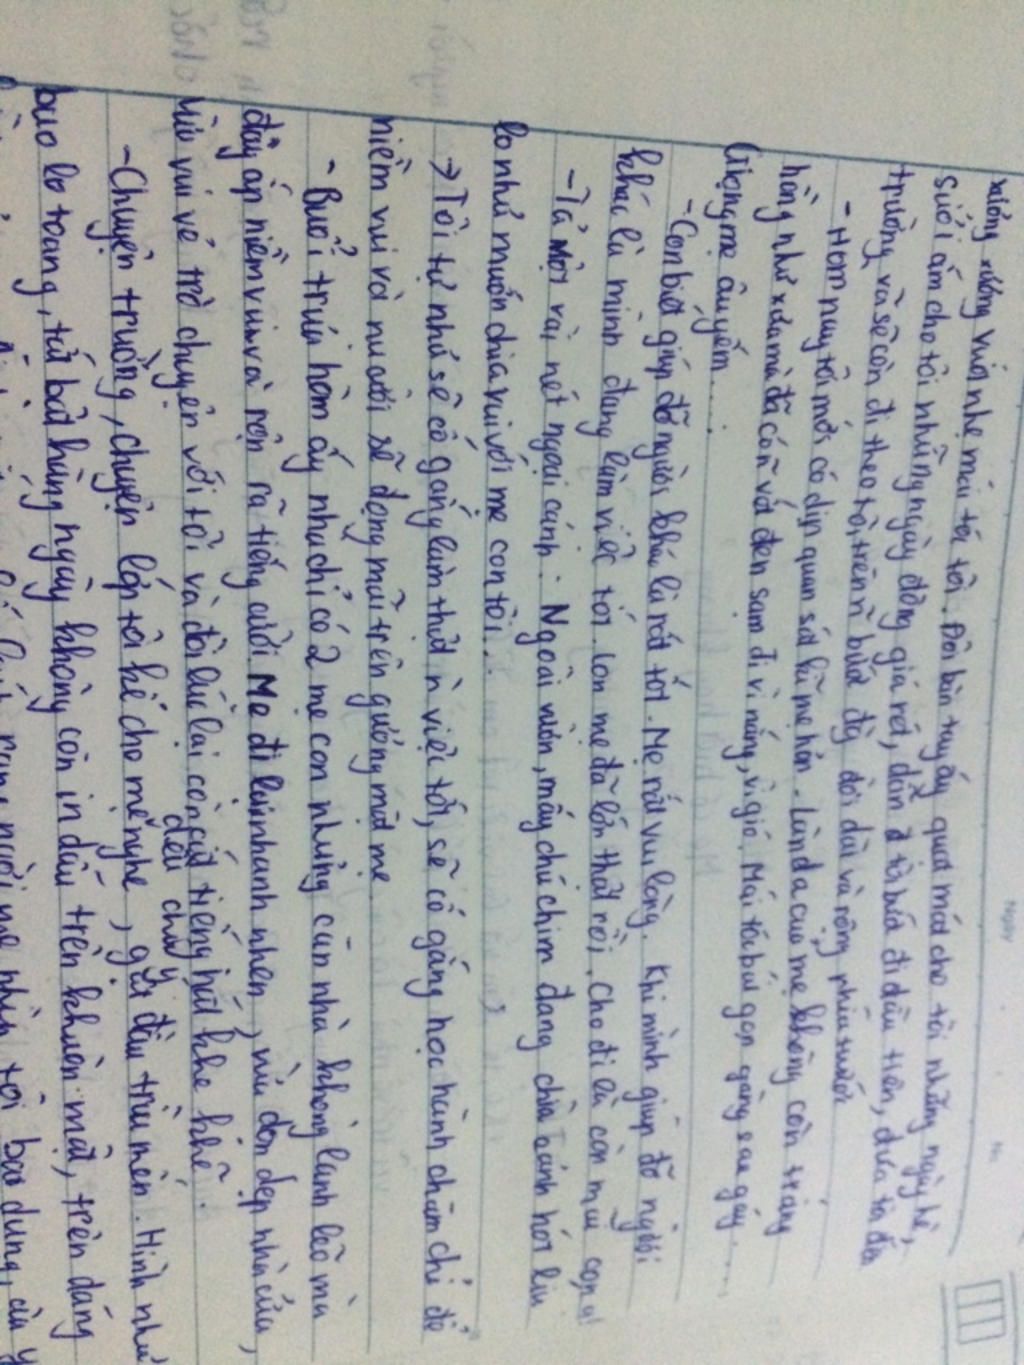 xuống vuốt nhẹ mái tóc tôi. Đôi bàn tay ấy quạt mát cho tôi những ngày hè,
sưởi ấm cho tôi những ngày đông giá rét, dẫn bước đi đầu tiên, đưa tôi đến
trường và sẽ còn đi theo tôi trên bước đời dài và rộng phía trước
- Hôm nay tôi mới có dịp quan sát kĩ mẹ hơn. Làn da của mẹ không còn trắng
hồng như xưa mà đã có vết đen sạm đi vì nắng, vì gió. Mái tóc búi gọn gàng sau gáy.....
Giọng mẹ âu yếm.....:
- Con biết giúp đỡ người khác là rất tốt. Mẹ rất vui lòng. Khi mình giúp đỡ người
khác là mình đang làm việc tốt. Con mẹ đã lớn thật rồi. Cho đi là còn mãi con ạ!
- Tả một vài nét ngoại cảnh: Ngoài vườn, mấy chú chim đang chìa cánh hót líu
lo như muốn chia vui với mẹ con tôi.
→ Tôi tự nhủ sẽ cố gắng làm thật n việc tốt, sẽ cố gắng học hành chăm chỉ để
niềm vui và nụ cười sẽ đọng mãi trên gương mặt mẹ
- Buổi trưa hôm ấy nhà chỉ có 2 mẹ con nhưng căn nhà không lạnh lẽo mà
đầy ắp niềm vui và rộn rã tiếng cười. Mẹ đi lại nhanh nhẹn, vừa dọn dẹp nhà cửa,
vừa vui vẻ trò chuyện với tôi và đôi lúc lại còn cất tiếng hát khe khẽ.
- Chuyện trường, chuyện lớp tôi kể cho mẹ nghe, đều chú ý gật đầu trìu mến. Hình như
bao lo toang, tất bật hằng ngày không còn in dấu trên khuôn mặt, trên dáng
người mẹ nhìn tôi bao dung, của